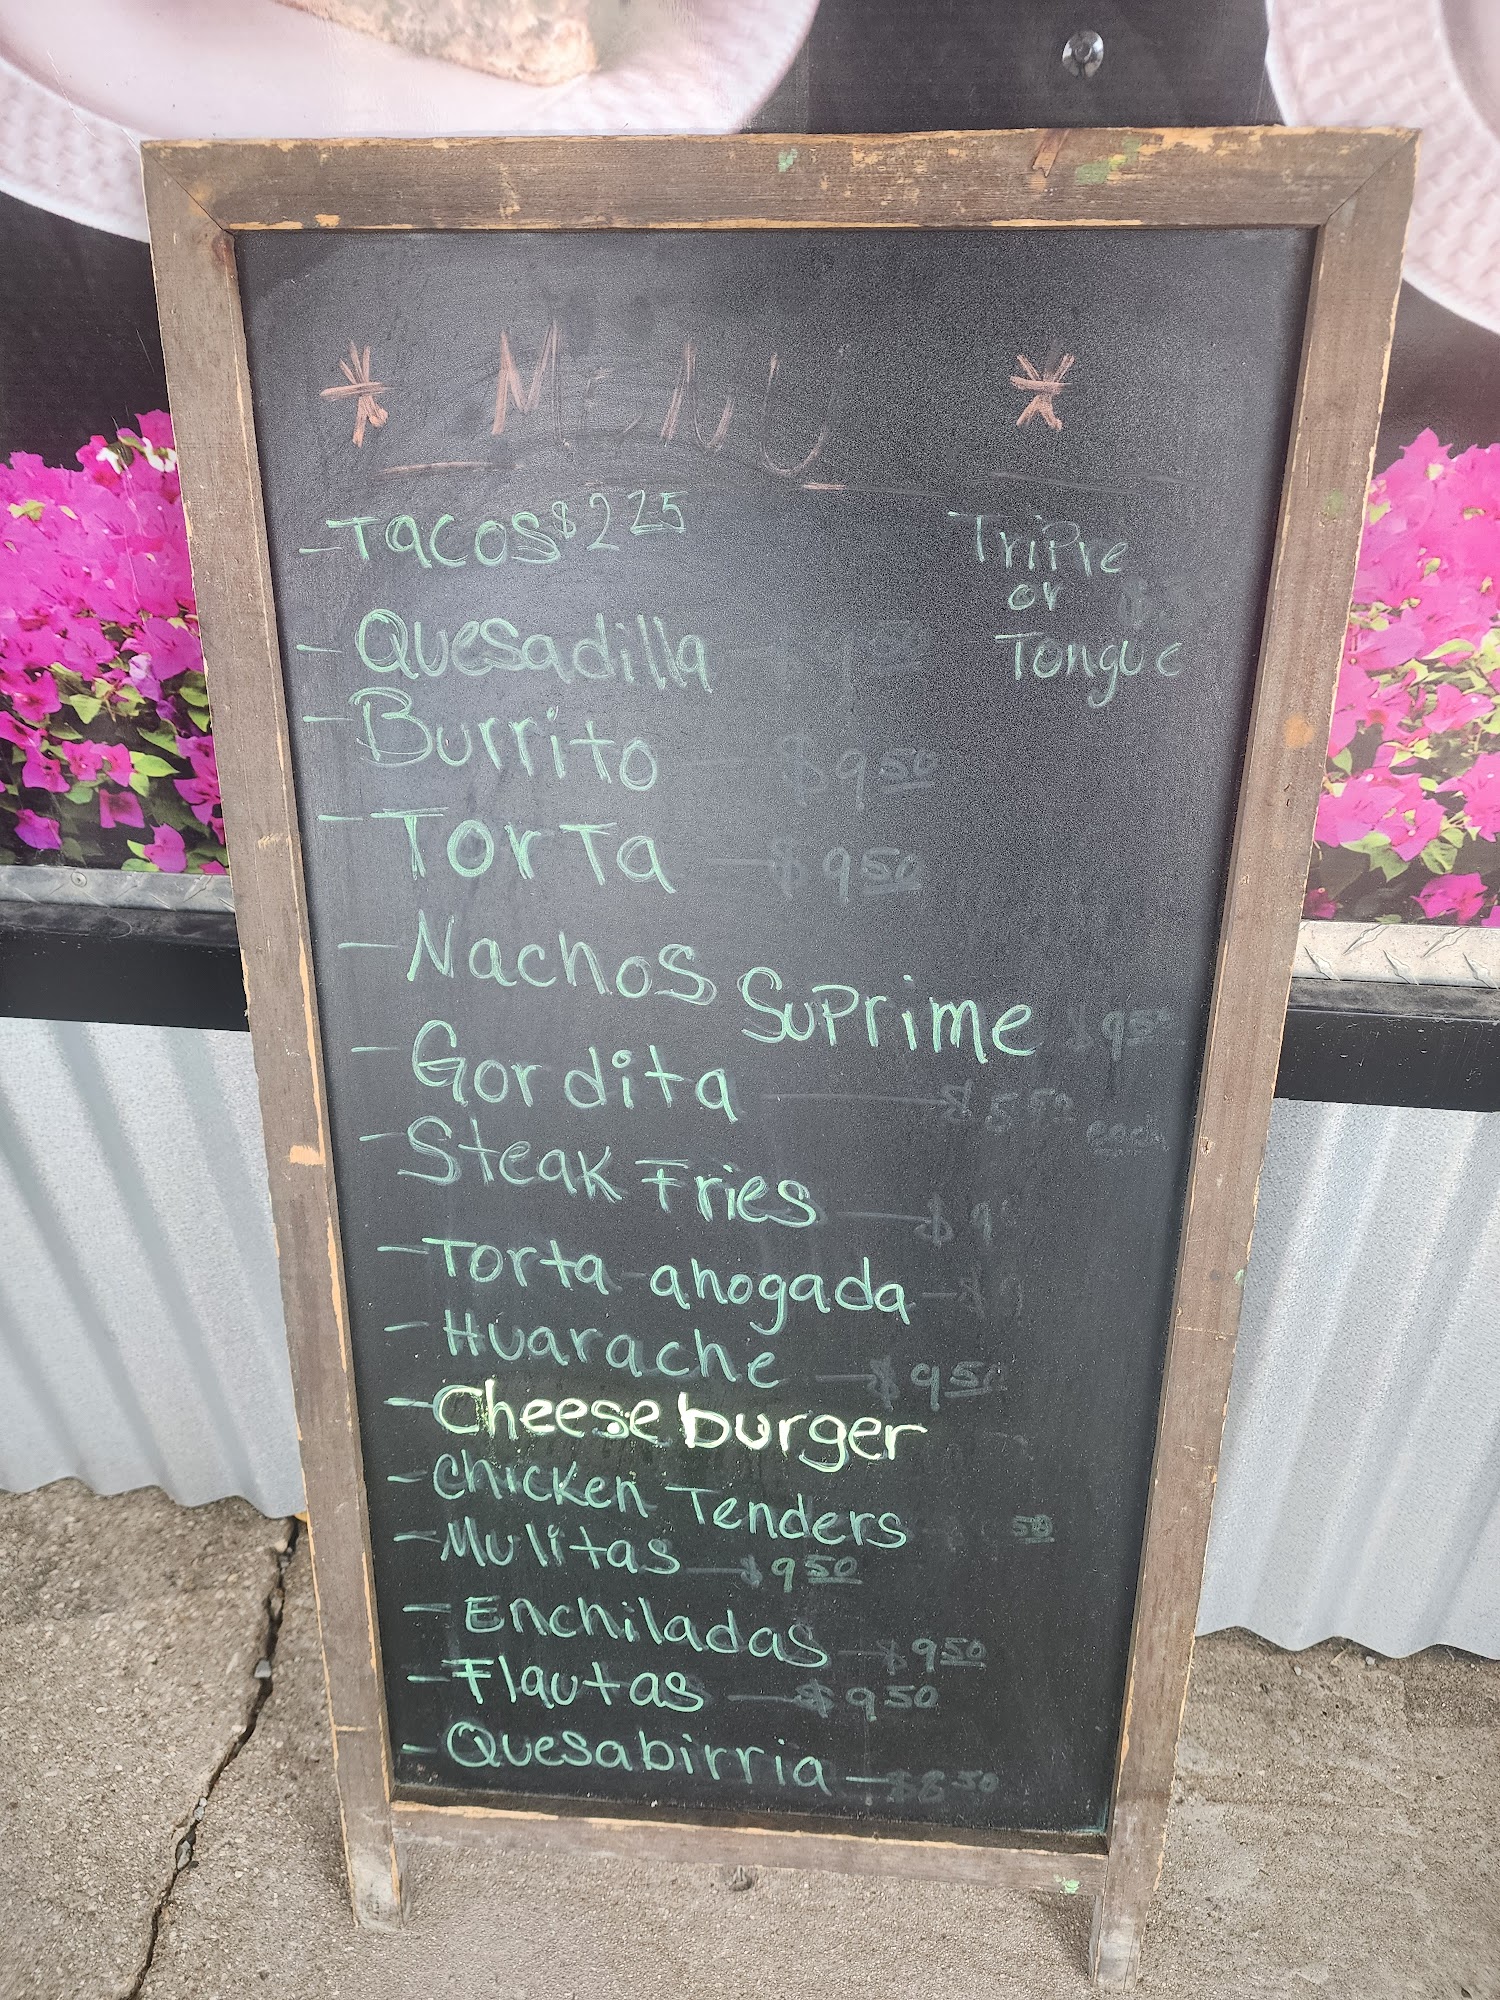 * MENU *
- Tacos $2 25
Tripie
or
Tongue
- Quesadilla
- Burrito $9 50
- Torta $9 50
- Nachos Suprime $9 50
- Gordita — $5 50 each
- Steak Fries — $9
- Torta ahogada — $9
- Huarache — $9 50
- Cheese burger
- Chicken Tenders 50
- Mulitas — $9 50
- Enchiladas — $9 50
- Flautas — $9 50
- Quesabirria — $8 50